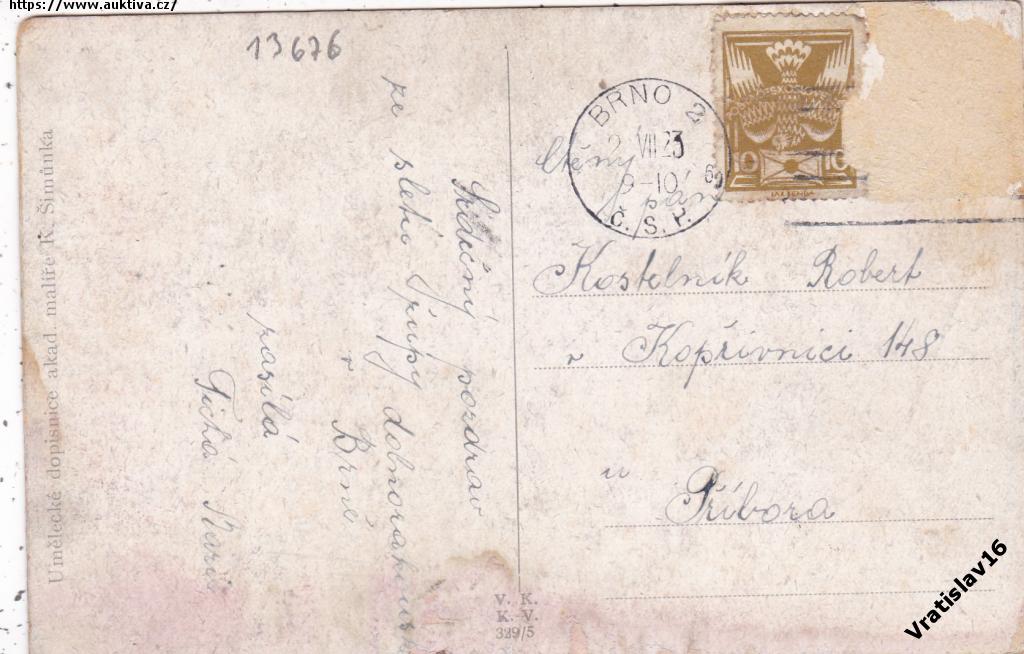 https://www.auktiva.cz/
13676
Umělecké dopisnice akad malíře K. Šimůnka
Srdečný pozdrav
ze sletu župy
v Brně
zasílá
Tichá Marie
BRNO 2
2 VII 23
9-10
Č.S.P.
10 10
Ctěný
pan
Kostelník Robert
v Kopřivnici 148
u
Příbora
V. K.
K.-V.
329/5
Vratislav16